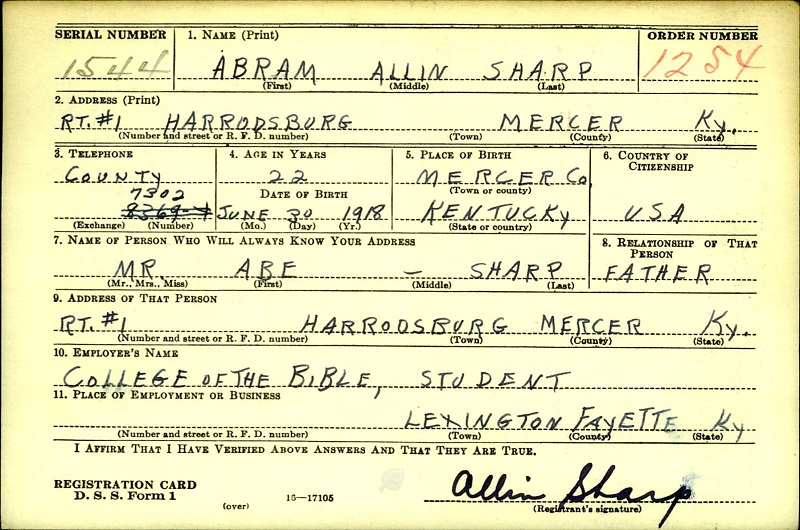 SERIAL NUMBER 1. NAME (Print) ORDER NUMBER
1544 ABRAM ALLIN SHARP 1254
(First) (Middle) (Last)
2. ADDRESS (Print)
RT. #1 HARRODSBURG MERCER Ky.
(Number and street or R. F. D. number) (Town) (County) (State)
3. TELEPHONE 4. AGE IN YEARS 5. PLACE OF BIRTH 6. COUNTRY OF
CITIZENSHIP
COUNTY 22 MERCER Co.
(Town or county)
7302 DATE OF BIRTH
8369-J JUNE 30 1918 KENTUCKY USA
(Exchange) (Number) (Mo.) (Day) (Yr.) (State or country)
7. NAME OF PERSON WHO WILL ALWAYS KNOW YOUR ADDRESS 8. RELATIONSHIP OF THAT
PERSON
MR. ABE – SHARP FATHER
(Mr., Mrs., Miss) (First) (Middle) (Last)
9. ADDRESS OF THAT PERSON
RT. #1 HARRODSBURG MERCER Ky.
(Number and street or R. F. D. number) (Town) (County) (State)
10. EMPLOYER'S NAME
COLLEGE OF THE BIBLE, STUDENT
11. PLACE OF EMPLOYMENT OR BUSINESS
LEXINGTON FAYETTE Ky
(Number and street or R. F. D. number) (Town) (County) (State)
I AFFIRM THAT I HAVE VERIFIED ABOVE ANSWERS AND THAT THEY ARE TRUE.
REGISTRATION CARD
D. S. S. Form 1 (over) 16—17105 Allin Sharp
(Registrant's signature)